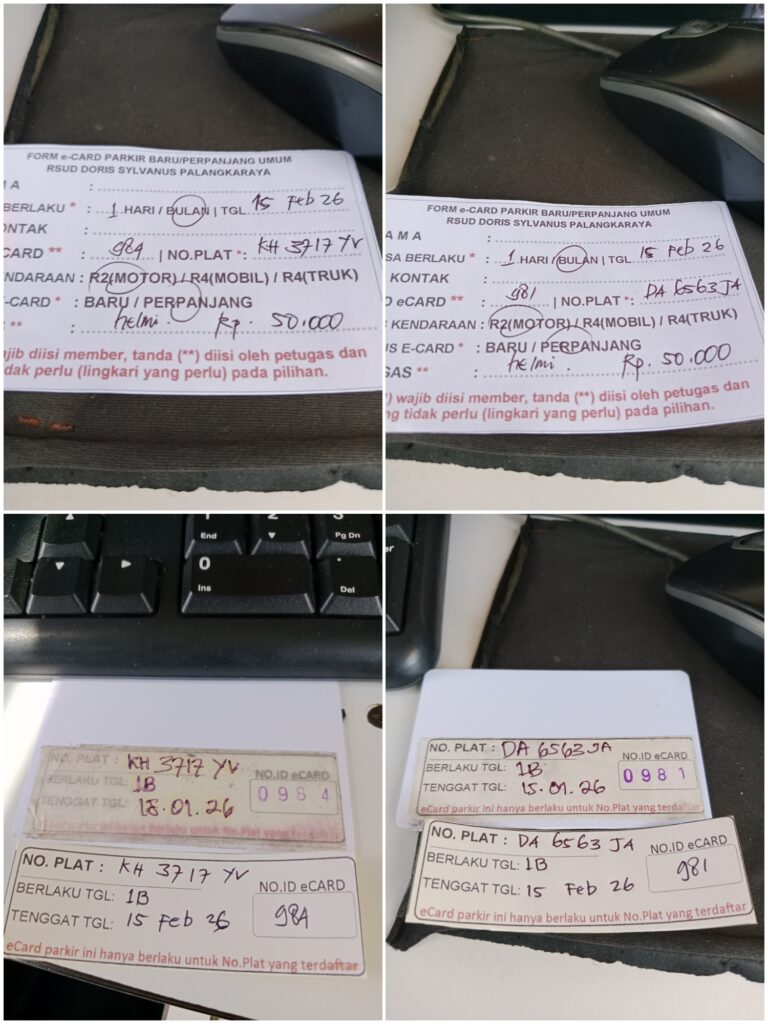 FORM e-CARD PARKIR BARU/PERPANJANG UMUM
RSUD DORIS SYLVANUS PALANGKARAYA
M A :
BERLAKU * : 1 HARI / BULAN | TGL 15 Feb 26
ONTAK :
CARD ** : 984 | NO.PLAT *: KH 3717 YV
NDARAAN : R2(MOTOR) / R4(MOBIL) / R4(TRUK)
-CARD * : BARU / PERPANJANG
** : helmi. Rp. 50.000
ajib diisi member, tanda (**) diisi oleh petugas dan
idak perlu (lingkari yang perlu) pada pilihan.
FORM e-CARD PARKIR BARU/PERPANJANG UMUM
RSUD DORIS SYLVANUS PALANGKARAYA
A M A :
SA BERLAKU * : 1 HARI / BULAN | TGL 15 Feb 26
KONTAK :
D eCARD ** : 981 | NO.PLAT *: DA 6563 JA
KENDARAAN : R2(MOTOR) / R4(MOBIL) / R4(TRUK)
S E-CARD * : BARU / PERPANJANG
GAS ** : helmi. Rp. 50.000
*) wajib diisi member, tanda (**) diisi oleh petugas dan
ng tidak perlu (lingkari yang perlu) pada pilihan.
1
End
2
3
Pg Dn
0
Ins
.
Del
NO. PLAT : KH 3717 YV
BERLAKU TGL: 1B
NO.ID eCARD
0984
TENGGAT TGL: 18.01.26
parkir ini hanya berlaku untuk No.Plat yang terdaftar
NO. PLAT : KH 3717 YV
BERLAKU TGL: 1B
NO.ID eCARD
984
TENGGAT TGL: 15 Feb 26
eCard parkir ini hanya berlaku untuk No.Plat yang terdaftar
er
NO. PLAT : DA 6563 JA
BERLAKU TGL: 1B
NO.ID eCARD
0981
TENGGAT TGL: 15.01.26
eCard parkir ini hanya berlaku untuk No.Plat yang terdaftar
NO. PLAT : DA 6563 JA
BERLAKU TGL: 1B
NO.ID eCARD
981
TENGGAT TGL: 15 Feb 26
eCard parkir ini hanya berlaku untuk No.Plat yang terdaftar